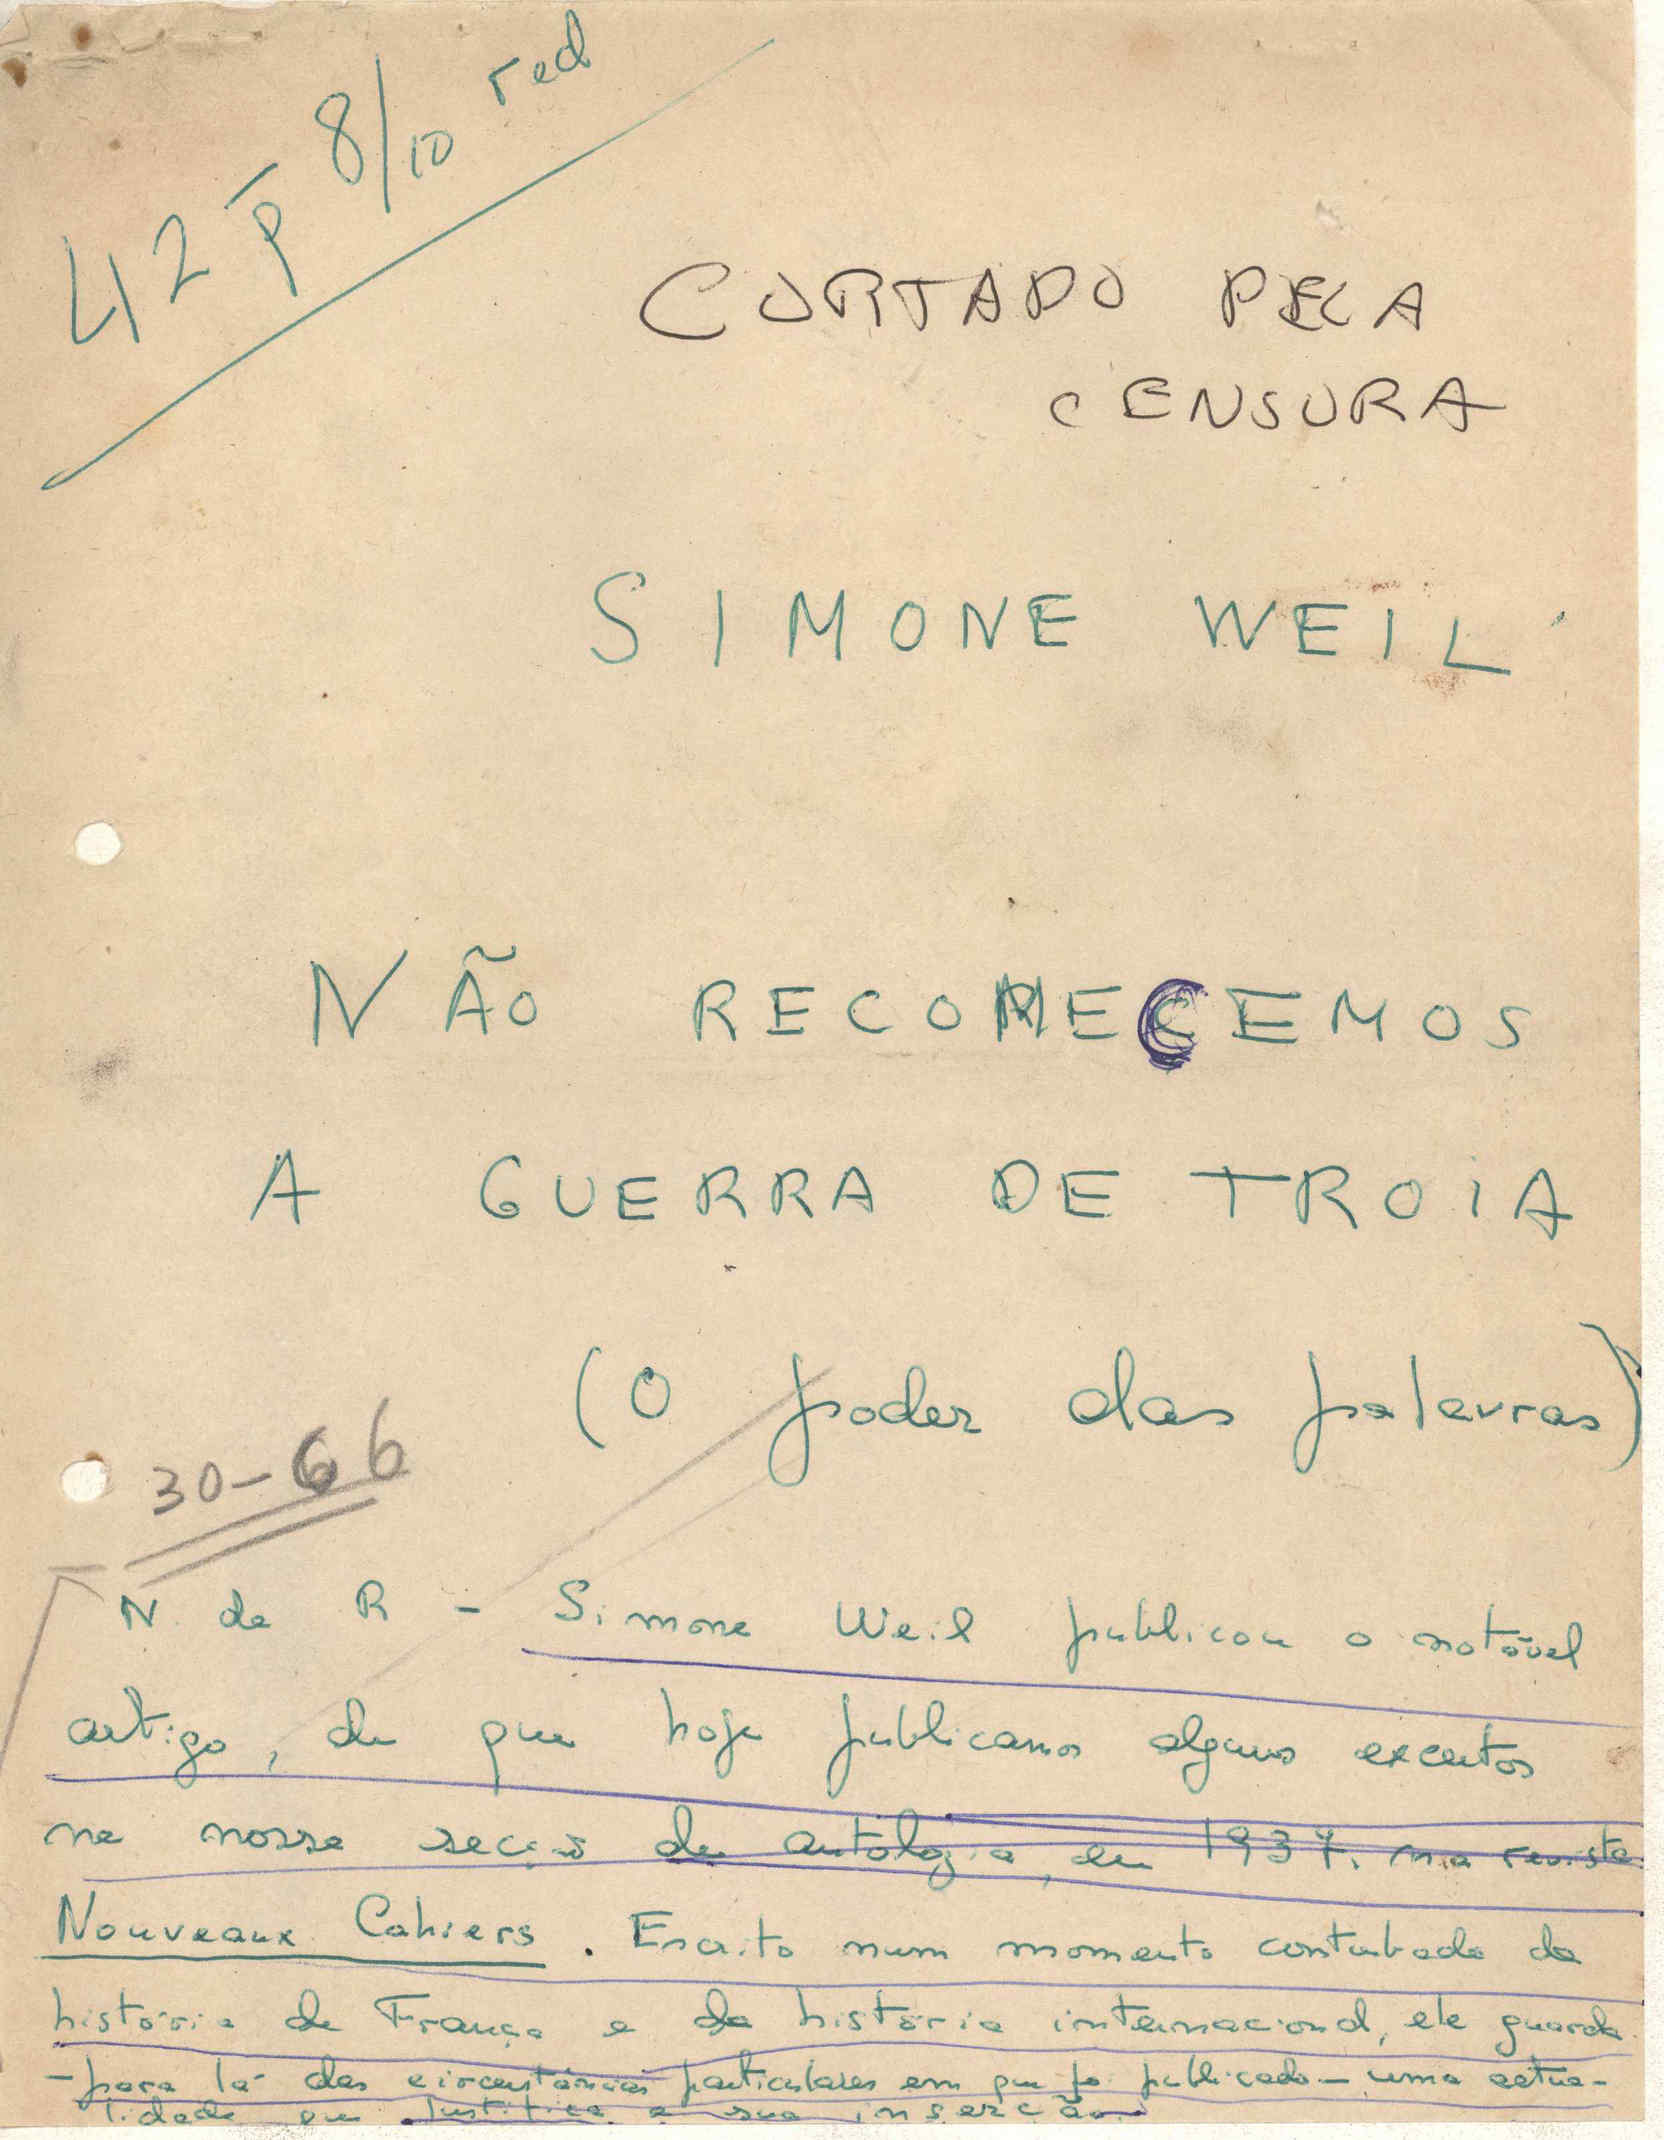 42 p 8/10 red
CORTADO PELA
CENSURA
SIMONE WEIL
NÃO RECOMECEMOS
A GUERRA DE TROIA
(O poder das palavras)
30-66
N. de R - Simone Weil publicou o notável
artigo, de que hoje publicamos alguns excertos
na nossa secção de antologia, em 1937, na revista
Nouveaux Cahiers. Escrito num momento conturbado da
história de França e da história internacional, ele guarda
- para lá das circunstâncias particulares em que foi publicado - uma actua-
lidade que justifica a sua inserção.